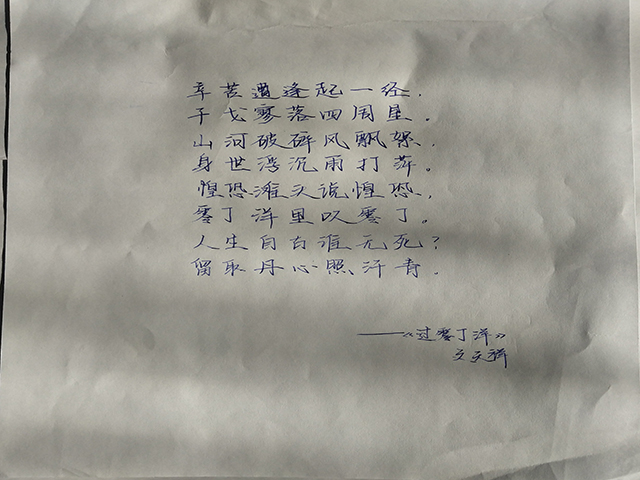 辛苦遭逢起一经，
干戈寥落四周星。
山河破碎风飘絮，
身世浮沉雨打萍。
惶恐滩头说惶恐，
零丁洋里叹零丁。
人生自古谁无死？
留取丹心照汗青。
——《过零丁洋》
文天祥